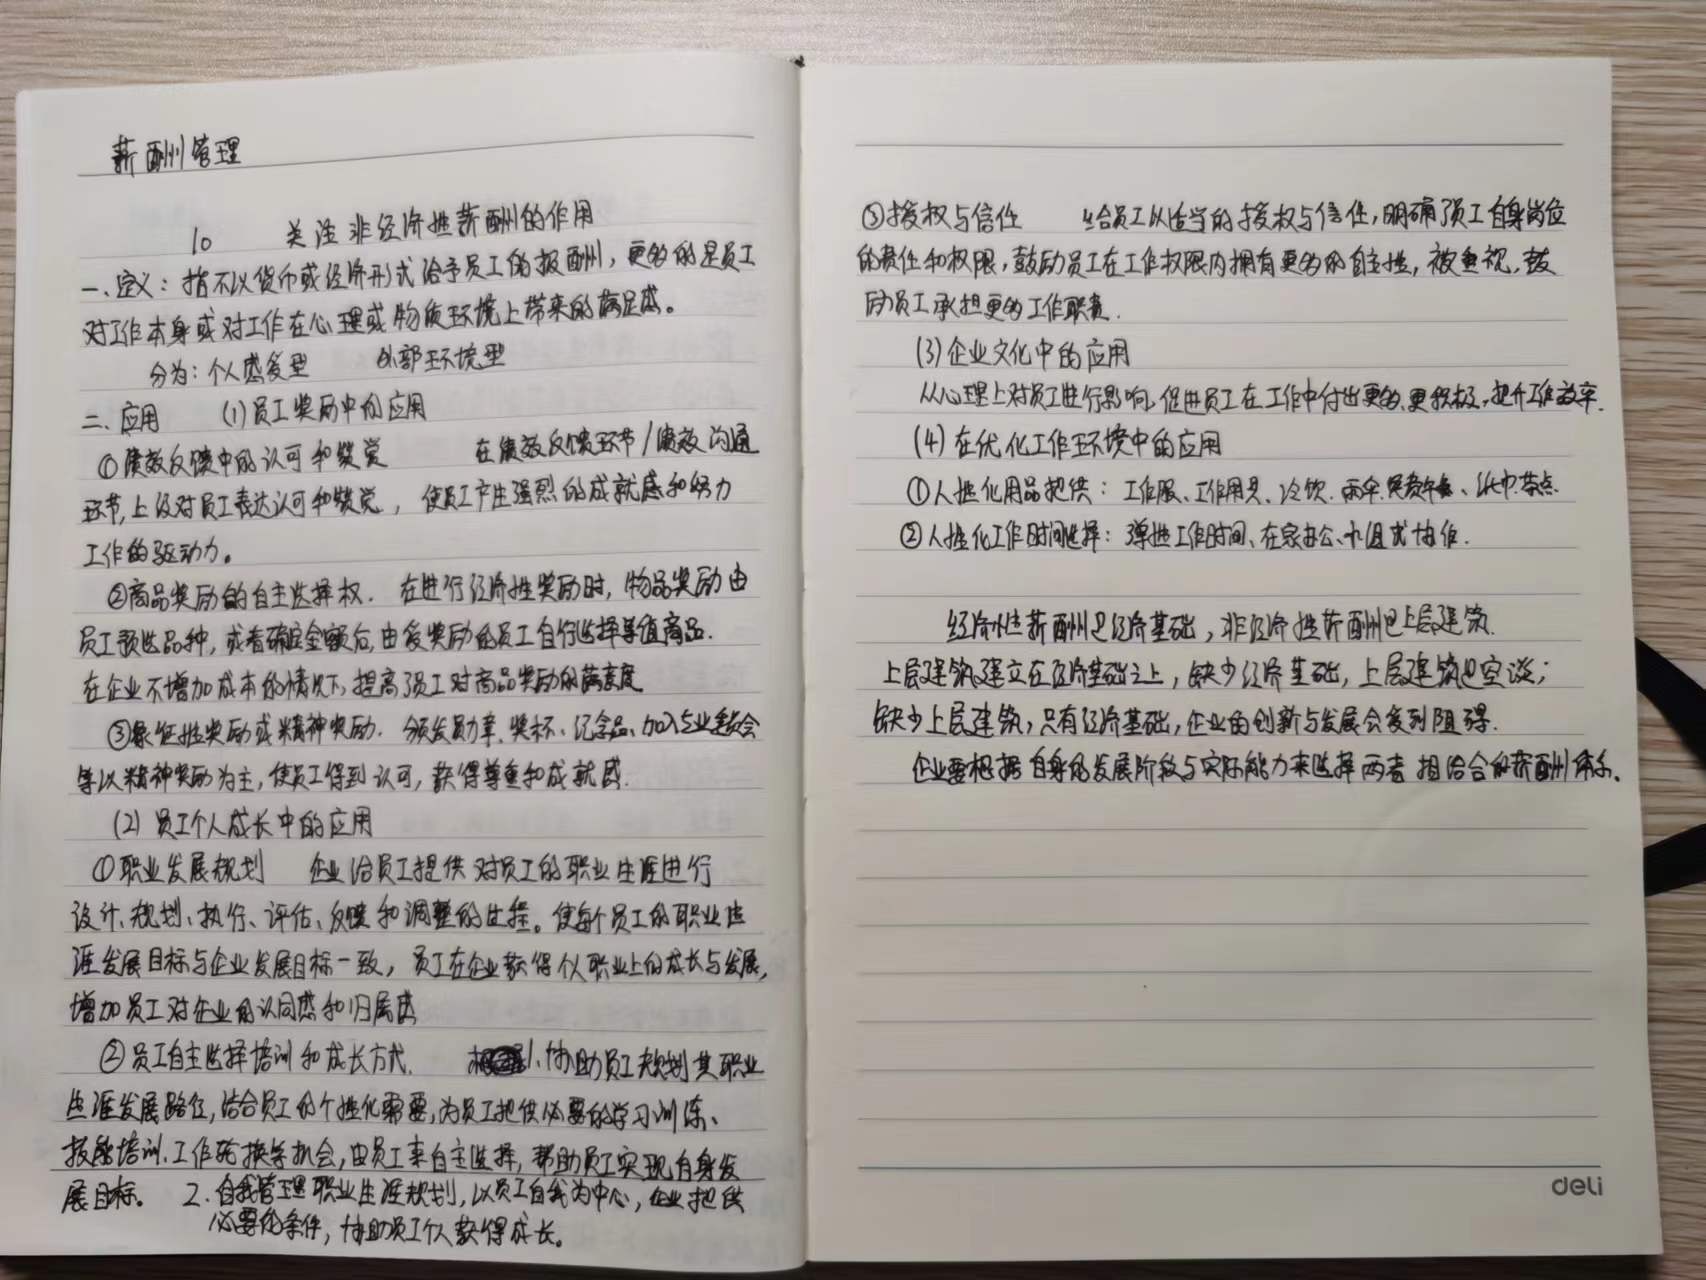 薪酬管理
10 关注非经济性薪酬的作用
一、定义：指不以货币或经济形式给予员工的报酬，更多的是员工
对工作本身或对工作在心理或物质环境上带来的满足感。
分为：个人感受型 外部环境型
二、应用 (1)员工奖励中的应用
①绩效反馈中的认可和赞赏 在绩效反馈环节/绩效沟通
环节,上级对员工表达认可和赞赏，使员工产生强烈的成就感和努力
工作的驱动力。
②商品奖励的自主选择权. 在进行经济性奖励时，物品奖励由
员工预选品种，或者确定金额后,由受奖励的员工自行选择等值商品.
在企业不增加成本的情况下,提高了员工对商品奖励的满意度
③象征性奖励或精神奖励. 颁发勋章、奖杯、纪念品、加入专业委员会
等以精神奖励为主，使员工得到认可，获得尊重和成就感.
(2) 员工个人成长中的应用
①职业发展规划 企业给员工提供对员工的职业生涯进行
设计、规划、执行、评估、反馈和调整的过程。使每个员工的职业生
涯发展目标与企业发展目标一致，员工在企业获得个人职业上的成长与发展,
增加员工对企业的认同感和归属感
②员工自主选择培训和成长方式. 1.协助员工规划其职业
生涯发展路径,结合员工的个性化需要,为员工提供必要的学习训练、
技能培训、工作轮换等机会,由员工来自主选择，帮助员工实现自身发
展目标。 2.自我管理职业生涯规划，以员工自我为中心，企业提供
必要的条件，协助员工个人获得成长。
③授权与信任 给员工以适当的授权与信任,明确了员工自身岗位
的责任和权限，鼓励员工在工作权限内拥有更多的自主性，被重视,鼓
励员工承担更多工作职责.
(3)企业文化中的应用
从心理上对员工进行影响,促进员工在工作中付出更多、更积极，提升工作效率.
(4)在优化工作环境中的应用
①人性化用品提供：工作服、工作用具、冷饮、雨伞、免费午餐、下午茶点.
②人性化工作时间选择：弹性工作时间、在家办公、小组式协作.
经济性薪酬是经济基础，非经济性薪酬是上层建筑.
上层建筑建立在经济基础之上，缺少经济基础，上层建筑是空谈；
缺少上层建筑，只有经济基础，企业的创新与发展会受到阻碍.
企业要根据自身的发展阶段与实际能力来选择两者相结合的薪酬体系.
deli